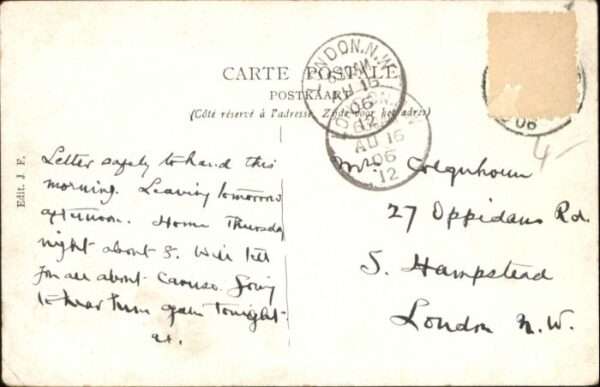 CARTE POSTALE
POSTKAART
(Côté réservé à l'adresse. Zijde voor het adres)
LONDON. N.W.
AU 16
06
12
LONDON.
AU 16
06
12
06
4/-
Edit. J. F.
Letter safely to hand this
morning. Leaving tomorrow
afternoon. Home Thursday
night about 8. Will tell
you all about Caruso. Going
to hear him again tonight-
Mr. Colquhoun
27 Oppidans Rd.
S. Hampstead
London N.W.